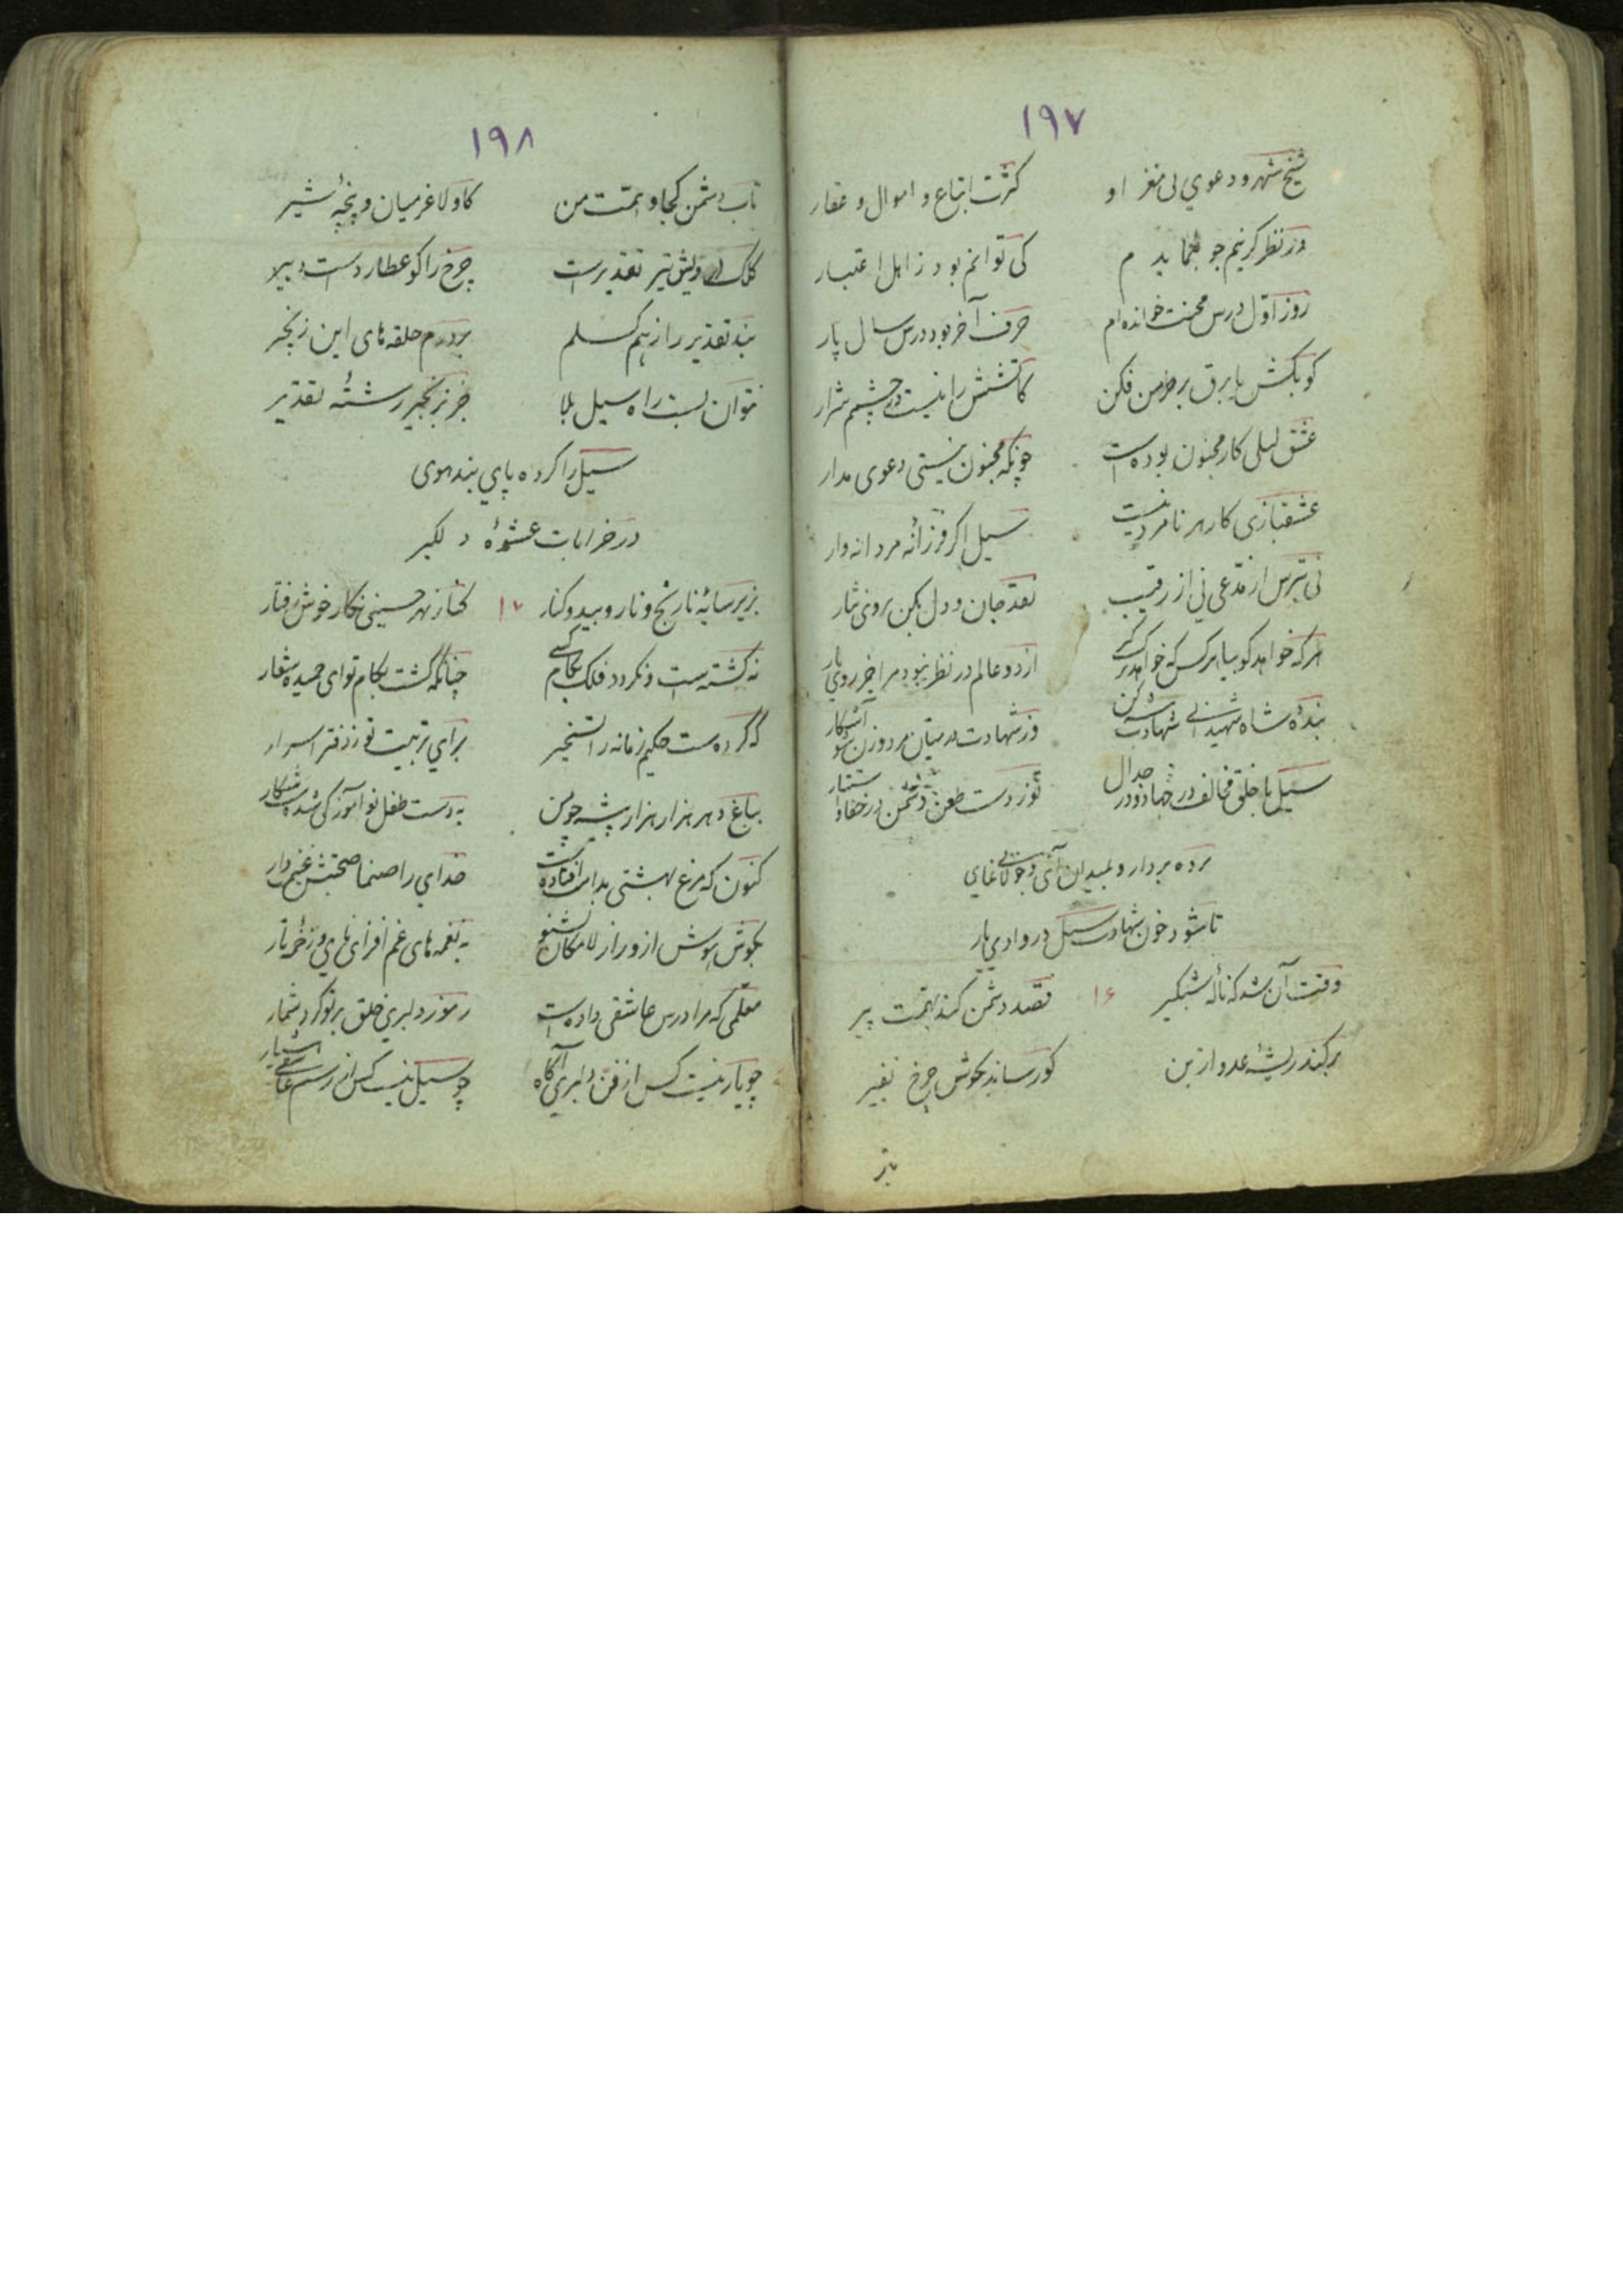 ۱۹۷
شیخ شهر و دعوی بی مغز او کثرت اتباع و اموال و عقار
در نظر کی توانم بود ز اهل اعتبار
روز اول درس محنت خوانده‌ام حرف آخر بود درس سال پار
کو بکش یا برق بر خرمن فکن کاتشش را نیست در چشم شرار
عشق لیلی کار مجنون بوده است چونکه مجنون نیستی دعوی مدار
عشقبازی کار هر نامرد نیست سیل اگر فرزانه مردانه وار
نی بترس از مدعی نی از رقیب نقد جان و دل بکن بروی نثار
هر که خواهد کو بیا هر کس که خواهد از دو عالم در نظر نبود مرا جز روی یار
بنده شاه شهیدانی شهادت کن وز شهادت در میان مرد و زن شو آشکار
سیل با خلق مخالف در جهاد و در جدال طعن دشمن در خفا
پرده بردار و بمیدان آی و جولانی نمای
تا شود خون شهادت سیل در وادی یار
وقت آن شد که ناله شبگیر ۱۶ قصد دشمن کند بهمت پیر
برکند ریشه عدو از بن کو رساند بگوش چرخ نفیر
بند
۱۹۸
تاب دشمن کجا و همت من کاو لاغر میان و پنجه شیر
کلک تیر تقدیر است چرخ را کو عطاردست دبیر
بند تقدیر را ز هم گسلم بردرم حلقه‌های این زنجیر
نتوان بست راه سیل بلا جز بزنجیر رشته تقدیر
سیل را کرده پای بند هوی
در خرابات عشوه دلگیر
بزیر سایه نارنج و نار و بید و کنار ۱۷ کنار نهر حسینی نگار خوش رفتار
نه گشته است و نگردد فلک بکام کسی چنانکه گشت بکام تو ای حمیده شعار
که کرده است حکیم زمانه را تسخیر برای تربیت تو ز دفتر اسرار
بباغ دهر هزار هزار پیشه چو من به دست طفل نوآموز کی شدست شکار
کنون که مرغ بهشتی بدامت افتاده است خدای را صنما صحبتش غنیم دار
بگوش هوش ازو راز لامکان بشنو به نغمه‌های غم افزای نای و زخمه تار
معلمی که مرا درس عاشقی داده است رموز دلبری خلق بر تو کرد شمار
چو یار نیست کس از فن دلبری آگاه چو سیل نیست کس از رسم عاشقی